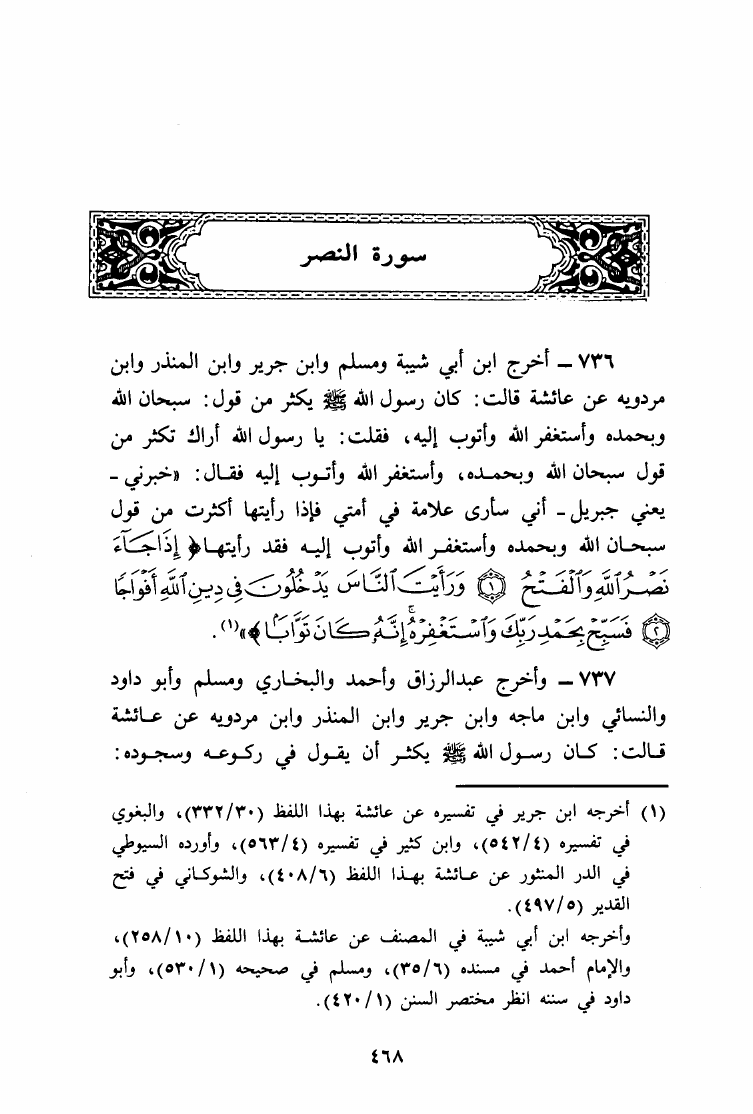 سورة النصر
٧٣٦ ــ أخرج ابن أبي شيبة ومسلم وابن جرير وابن المنذر وابن
مردويه عن عائشة قالت: كان رسول الله ﷺ يكثر من قول: سبحان الله
وبحمده وأستغفر الله وأتوب إليه، فقلت: يا رسول الله أراك تكثر من
قول سبحان الله وبحمـده، وأستغفر الله وأتـوب إليه فقـال: «خبرني -
يعني جبريل - أني سأرى علامة في أمتي فإذا رأيتها أكثرت من قول
سبحـان الله وبحمده وأستغفـر الله وأتوب إليـه فقد رأيتهـا﴿ إِذَا جَآءَ
نَصْرُ ٱللَّهِ وَٱلْفَتْحُ ۝١ وَرَأَيْتَ ٱلنَّاسَ يَدْخُلُونَ فِى دِينِ ٱللَّهِ أَفْوَاجًا
۝٢ فَسَبِّحْ بِحَمْدِ رَبِّكَ وَٱسْتَغْفِرْهُ ۚ إِنَّهُۥ كَانَ تَوَّابًۢا ﴾»(١).
٧٣٧ ــ وأخرج عبدالرزاق وأحمد والبخـاري ومسلم وأبو داود
والنسائي وابن ماجه وابن جرير وابن المنذر وابن مردويه عن عـائشة
قـالت: كـان رسـول الله ﷺ يكثـر أن يقـول في ركـوعـه وسجـوده:
(١) أخرجه ابن جرير في تفسيره عن عائشة بهذا اللفظ (٣٣٢/٣٠)، والبغوي
في تفسيره (٥٤٢/٤)، وابن كثير في تفسيره (٥٦٣/٤)، وأورده السيوطي
في الدر المنثور عن عـائشة بهـذا اللفظ (٤٠٨/٦)، والشوكـاني في فتح
القدير (٤٩٧/٥).
وأخرجه ابن أبي شيبة في المصنف عن عائشـة بهذا اللفظ (٢٥٨/١٠)،
والإمام أحمد في مسنده (٣٥/٦)، ومسلم في صحيحه (٥٣٠/١)، وأبو
داود في سننه انظر مختصر السنن (٤٢٠/١).
٤٦٨